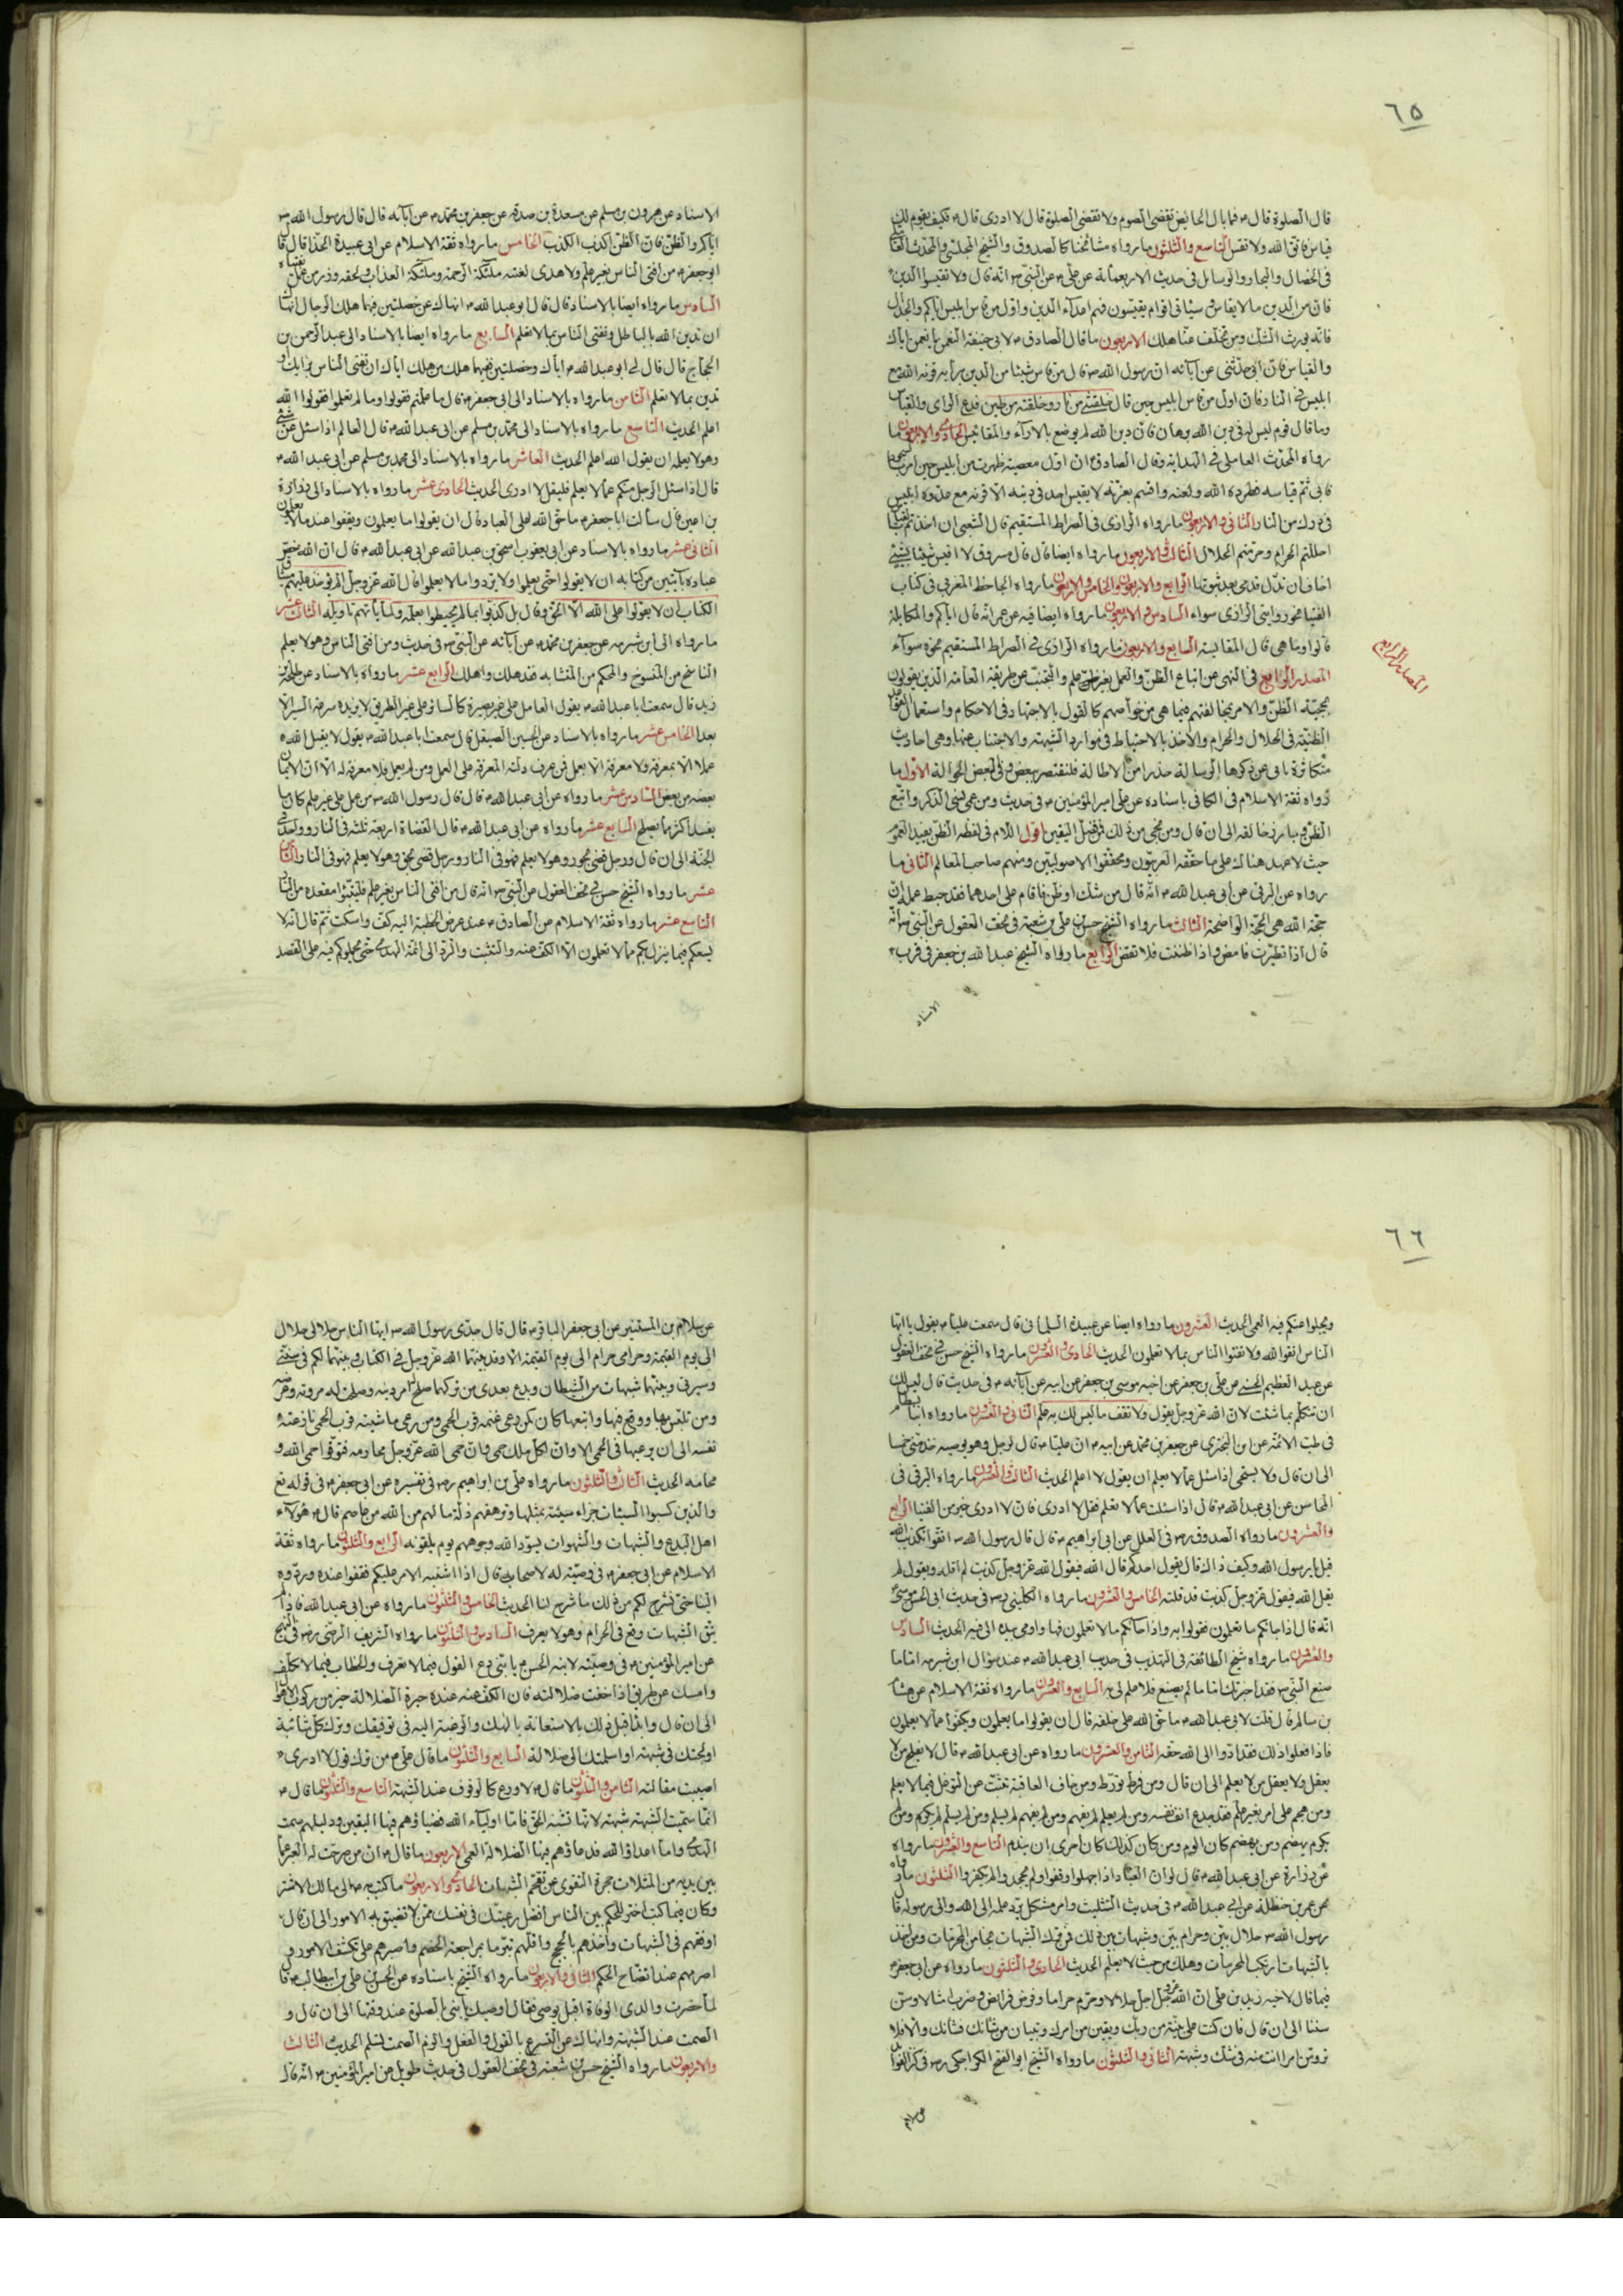 ٦٥
قال الصلوة قال م فما بال الحائض تقضى الصوم ولا تقضى الصلوة قال لا ادرى قال م فكيف يقوم لك
قياس فاتق الله ولا تقس التاسع والثلثون ما رواه مشائخنا كالصدوق والشيخ المجلسى والمحدث
فى الخصال والبحار والوسايل فى حديث الاربعمائة عن على م عن النبى ص انه قال ولا تقيسوا الدين
فان من الدين ما لا يقاس وسياتى اقوام يقيسون فهم اعداء الدين واول من قاس ابليس اياكم والجدال
فانه يورث الشك ومن تخلف عنا هلك الاربعون ما قال الصادق م لابى حنيفة النعمن يا نعمن اياك
والقياس فان ابى حدثنى عن آبائه ان رسول الله ص قال من قاس شيئا من الدين برايه قرنه الله مع
ابليس فى النار فان اول من قاس ابليس حين قال خلقتنى من نار وخلقته من طين فدع الراى والقياس
وما قال قوم ليس له فى دين الله برهان فان دين الله لم يوضع بالآراء والمقائيس الحادى والاربعون ما
رواه المحدث العاملى فى الهداية وقال الصادق م ان اول معصية ظهرت من ابليس حين امر
فابى ثم قياسه فطرده الله ولعنه واقسم بعزته لا يقيس احد فى دينه الا قرنه مع عدوه ابليس
فى درك من النار الثانى والاربعون ما رواه الرازى فى الصراط المستقيم قال الشعبى ان اخذتم
احللتم الحرام وحرمتم الحلال الثالث والاربعون ما رواه ايضا قال قال مسروق لا اقيس شيئا بشيئ
اخاف ان تذل قدمى بعد ثبوتها الرابع والاربعون والخامس والاربعون ما رواه الجاحظ المغربى فى كتاب
الفتيا نحو روايتى الرازى سواء السادس والاربعون ما رواه ايضا فيه عن عمر انه قال اياكم والمكايلة
قالوا وما هى قال المقايسة السابع والاربعون ما رواه الرازى فى الصراط المستقيم نحوه سواء
المصدر الرابع
المصدر الرابع فى النهى عن اتباع الظن والعمل بغير علم والتجنب عن طريقة العامة الذين يقولون
بحجية الظن والامر بمخالفتهم فيما هى من خواصهم كالقول بالاجتهاد فى الاحكام واستعمال
الظنية فى الحلال والحرام والاخذ بالاحتياط فى موارد الشبهة والاجتناب عنها وهى احاديث
متكاثرة ياتى عن ذكرها الرسالة حذرا من الاطالة فلنقتصر ببعض وفى البعض الحوالة الاول ما
رواه ثقة الاسلام فى الكافى باسناده عن على امير المؤمنين م فى حديث ومن عمى نسى الذكر واتبع
الظن وبارز خالقه الى ان قال ومن نجى من ذلك فمن فضل اليقين اقول اللام فى لفظة الظن يفيد العموم
حيث لا عهد هناك على ما حققه العربيون ومحققوا الاصوليين ومنهم صاحب المعالم الثانى ما
رواه عن البرقى عن ابى عبد الله م انه قال من شك او ظن فاقام على احدهما فقد حبط عمله ان
حجة الله هى الحجة الواضحة الثالث ما رواه الشيخ حسن بن على بن شعبة فى تحف العقول عن النبى ص انه
قال اذا تطيرت فامض واذا ظننت فلا تقض الرابع ما رواه الشيخ عبد الله بن جعفر فى قرب
الاسناد
الاسناد عن هرون بن مسلم عن مسعدة بن صدقة عن جعفر بن محمد م عن آبائه قال قال رسول الله ص
اياكم والظن فان الظن اكذب الكذب الخامس ما رواه ثقة الاسلام عن ابى عبيدة الحذا قال قال
ابو جعفر م من افتى الناس بغير علم ولا هدى لعنته ملئكة الرحمة وملئكة العذاب ولحقه وزر من عمل بفتياه
السادس ما رواه ايضا بالاسناد قال قال ابو عبد الله م انهاك عن خصلتين فيهما هلك الرجال انهاك
ان تدين الله بالباطل وتفتى الناس بما لا تعلم السابع ما رواه ايضا بالاسناد الى عبد الرحمن بن
الحجاج قال قال لى ابو عبد الله م اياك وخصلتين ففيهما هلك من هلك اياك ان تفتى الناس برايك او
تدين بما لا تعلم الثامن ما رواه بالاسناد الى ابى جعفر م قال ما علمتم فقولوا وما لم تعلموا فقولوا الله
اعلم الحديث التاسع ما رواه بالاسناد الى محمد بن مسلم عن ابى عبد الله م قال العالم اذا سئل عن شئ
وهو لا يعلمه ان يقول الله اعلم الحديث العاشر ما رواه بالاسناد الى محمد بن مسلم عن ابى عبد الله م
قال اذا سئل الرجل منكم عما لا يعلم فليقل لا ادرى الحديث الحادى عشر ما رواه بالاسناد الى زرارة
بن اعين قال سألت ابا جعفر م ما حق الله على العباد قال ان يقولوا ما يعلمون ويقفوا عند ما لا يعلمون
الثانى عشر ما رواه بالاسناد عن ابى يعقوب اسحق بن عبد الله عن ابى عبد الله م قال ان الله خص
عباده بآيتين من كتابه ان لا يقولوا حتى يعلموا ولا يردوا ما لا يعلموا قال الله عز وجل الم يؤخذ عليهم ميثاق
الكتاب ان لا يقولوا على الله الا الحق وقال بل كذبوا بما لم يحيطوا بعلمه ولما يأتهم تاويله الثالث عشر
ما رواه الى ابن شبرمه عن جعفر بن محمد م عن آبائه عن النبى ص فى حديث ومن افتى الناس وهو لا يعلم
الناسخ من المنسوخ والمحكم من المتشابه فقد هلك واهلك الرابع عشر ما رواه بالاسناد عن طلحة بن
زيد قال سمعت ابا عبد الله م يقول العامل على غير بصيرة كالسائر على غير الطريق لا يزيده سرعة السير الا
بعدا الخامس عشر ما رواه بالاسناد عن الحسين الصيقل قال سمعت ابا عبد الله م يقول لا يقبل الله
عملا الا بمعرفة ولا معرفة الا بعمل فمن عرف دلته المعرفة على العمل ومن لم يعمل فلا معرفة له الا ان الايمان
بعضه من بعض السادس عشر ما رواه عن ابى عبد الله م قال قال رسول الله ص من عمل على غير علم كان ما
يفسد اكثر مما يصلح السابع عشر ما رواه عن ابى عبد الله م قال القضاة اربعة ثلثة فى النار وواحد فى
الجنة الى ان قال ورجل قضى بجور وهو لا يعلم فهو فى النار ورجل قضى بحق وهو لا يعلم فهو فى النار الثامن
عشر ما رواه الشيخ حسن فى تحف العقول عن النبى ص انه قال من افتى الناس بغير علم فليتبؤا مقعده من النار
التاسع عشر ما رواه ثقة الاسلام عن الصادق م عند عرض الخطبة اليه كف واسكت ثم قال انه لا
يسعكم فيما ينزل بكم مما لا تعلمون الا الكف عنه والتثبت والرد الى ائمة الهدى حتى يحملوكم فيه على القصد
٦٦
ويجلوا عنكم فيه العمى الحديث العشرون ما رواه ايضا عن عبيدة السلمانى قال سمعت عليا م يقول يا ايها
الناس اتقوا الله ولا تفتوا الناس بما لا تعلمون الحديث الحادى والعشرون ما رواه الشيخ حسن فى تحف العقول
عن عبد العظيم الحسنى عن على بن جعفر عن اخيه موسى بن جعفر عن ابيه عن آبائه م فى حديث قال ليس لك
ان تتكلم بما شئت لان الله عز وجل يقول ولا تقف ما ليس لك به علم الثانى والعشرون ما رواه ابنا بسطام
فى طب الائمة عن ابن البخترى عن جعفر بن محمد عن ابيه م ان عليا م قال لرجل وهو يوصيه خذ منى خمسا
الى ان قال ولا يستحى اذا سئل عما لا يعلم ان يقول لا اعلم الحديث الثالث والعشرون ما رواه البرقى فى
المحاسن عن ابى عبد الله م قال اذا سئلت عما لا تعلم فقل لا ادرى فان لا ادرى خير من الفتيا الرابع
والعشرون ما رواه الصدوق ره فى العلل عن ابى ابراهيم م قال قال رسول الله ص اتقوا تكذيب الله
قيل يا رسول الله وكيف ذاك قال يقول احدكم قال الله فيقول الله عز وجل كذبت لم اقله ويقول لم
يقل الله فيقول عز وجل كذبت قد قلته الخامس والعشرون ما رواه الكلينى ره فى حديث ابى الحسن موسى م
انه قال اذا جائكم ما تعلمون فقولوا به واذا جائكم ما لا تعلمون فها واومى بيده الى فيه الحديث السادس
والعشرون ما رواه شيخ الطائفة فى التهذيب فى حديث ابى عبد الله م عند سؤال ابن شبرمه اما ما
صنع النبى ص فقد اخبرتك اما ما لم يصنع فلا علم لى به السابع والعشرون ما رواه ثقة الاسلام عن هشام
بن سالم قال قلت لابى عبد الله م ما حق الله على خلقه قال ان يقولوا ما يعلمون ويكفوا عما لا يعلمون
فاذا فعلوا ذلك فقد ادوا الى الله حقه الثامن والعشرون ما رواه عن ابى عبد الله م قال لا يفلح من لا
يعقل ولا يعقل من لا يعلم الى ان قال ومن فرط تورط ومن خاف العاقبة تثبت عن التوغل فيما لا يعلم
ومن هجم على امر بغير علم فقد جدع انف نفسه ومن لم يعلم لم يفهم ومن لم يفهم لم يسلم ومن لم يسلم لم يكرم ومن لم
يكرم يهضم ومن يهضم كان الوم ومن كان كذلك كان احرى ان يندم التاسع والعشرون ما رواه
عن زرارة عن ابى عبد الله م قال لو ان العباد اذا جهلوا وقفوا ولم يجحدوا لم يكفروا الثلثون ما رواه
عن عمر بن حنظلة عن ابى عبد الله م فى حديث التثليث وامر مشكل يرد علمه الى الله والى رسوله قال
رسول الله ص حلال بين وحرام بين وشبهات بين ذلك فمن ترك الشبهات نجا من المحرمات ومن اخذ
بالشبهات ارتكب المحرمات وهلك من حيث لا يعلم الحديث الحادى والثلثون ما رواه عن ابى جعفر م
فيما قال لاخيه زيد بن على ان الله عز وجل احل حلالا وحرم حراما وفرض فرائض وضرب امثالا وسن
سننا الى ان قال فان كنت على بينة من ربك ويقين من امرك وتبيان من شأنك فشأنك والا فلا
ترومن امرا انت منه فى شك وشبهة الثانى والثلثون ما رواه الشيخ ابو الفتح الكراجكى ره فى كنز الفوائد
عن سلام
عن سلام بن المستنير عن ابى جعفر الباقر م قال قال جدى رسول الله ص ايها الناس حلالى حلال
الى يوم القيمة وحرامى حرام الى يوم القيمة الا وقد بينهما الله عز وجل فى الكتاب وبينتهما لكم فى سنتى
وسيرتى وبينهما شبهات من الشيطان وبدع بعدى من تركها صلح له امر دينه وصلحت له مروته وعرضه
ومن تلبس بها ووقع فيها واتبعها كان كمن رعى غنمه قرب الحمى ومن رعى ماشيته قرب الحمى نازعته
نفسه الى ان يرعيها فى الحمى الا وان لكل ملك حمى وان حمى الله عز وجل محارمه فتوقوا حمى الله و
محارمه الحديث الثالث والثلثون ما رواه على بن ابراهيم ره فى تفسيره عن ابى جعفر م فى قوله تع
والذين كسبوا السيئات جزاء سيئة بمثلها وترهقهم ذلة ما لهم من الله من عاصم قال م هؤلاء
اهل البدع والشبهات والشهوات يسود الله وجوههم يوم يلقونه الرابع والثلثون ما رواه ثقة
الاسلام عن ابى جعفر م فى وصيته له لاصحابه قال اذا اشتبه الامر عليكم فقفوا عنده وردوه
الينا حتى نشرح لكم من ذلك ما شرح لنا الحديث الخامس والثلثون ما رواه عن ابى عبد الله
الشبهات وقع فى الحرام وهو لا يعرف السادس والثلثون ما رواه الشريف الرضى رض فى النهج
عن امير المؤمنين م فى وصيته لابنه الحسن م يا بنى دع القول فيما لا تعرف والخطاب فيما لا تكلف
وامسك عن طريق اذا خفت ضلالته فان الكف عنه عند حيرة الضلالة خير من ركوب الاهوال
الى ان قال وابدأ قبل ذلك بالاستعانة بالهك والرغبة اليه فى توفيقك وترك كل شائبة
اولجتك فى شبهة او اسلمتك الى ضلالة السابع والثلثون ما قال على م من ترك قول لا ادرى
اصيبت مقاتله الثامن والثلثون ما قال م لا ورع كالوقوف عند الشبهة التاسع والثلثون ما قال م
انما سميت الشبهة شبهة لانها تشبه الحق فاما اولياء الله فضياؤهم فيها اليقين ودليلهم سمت
الهدى واما اعداء الله فدعاؤهم فيها الضلالة العمى الاربعون ما قال م ان من صرحت له العبر عما
بين يديه من المثلات حجزه التقوى عن تقحم الشبهات الحادى والاربعون ما كتب به م الى مالك الاشتر
وكان فيما كتب اختر للحكم بين الناس افضل رعيتك فى نفسك ممن لا تضيق به الامور الى ان قال
اوقفهم فى الشبهات واخذهم بالحجج واقلهم تبرما بمراجعة الخصم واصبرهم على تكشف الامور و
اصرمهم عند اتضاح الحكم الثانى والاربعون ما رواه الشيخ باسناده عن الحسن بن على بن ابيطالب م قال
لما حضرت والدى الوفاة اقبل يوصى فقال اوصيك يا بنى بالصلوة عند وقتها الى ان قال و
الصمت عند الشبهة وانهاك عن التسرع بالقول والفعل والزم الصمت تسلم الحديث الثالث
والاربعون ما رواه الشيخ حسن بن شعبة فى تحف العقول فى حديث طويل عن امير المؤمنين م انه قال